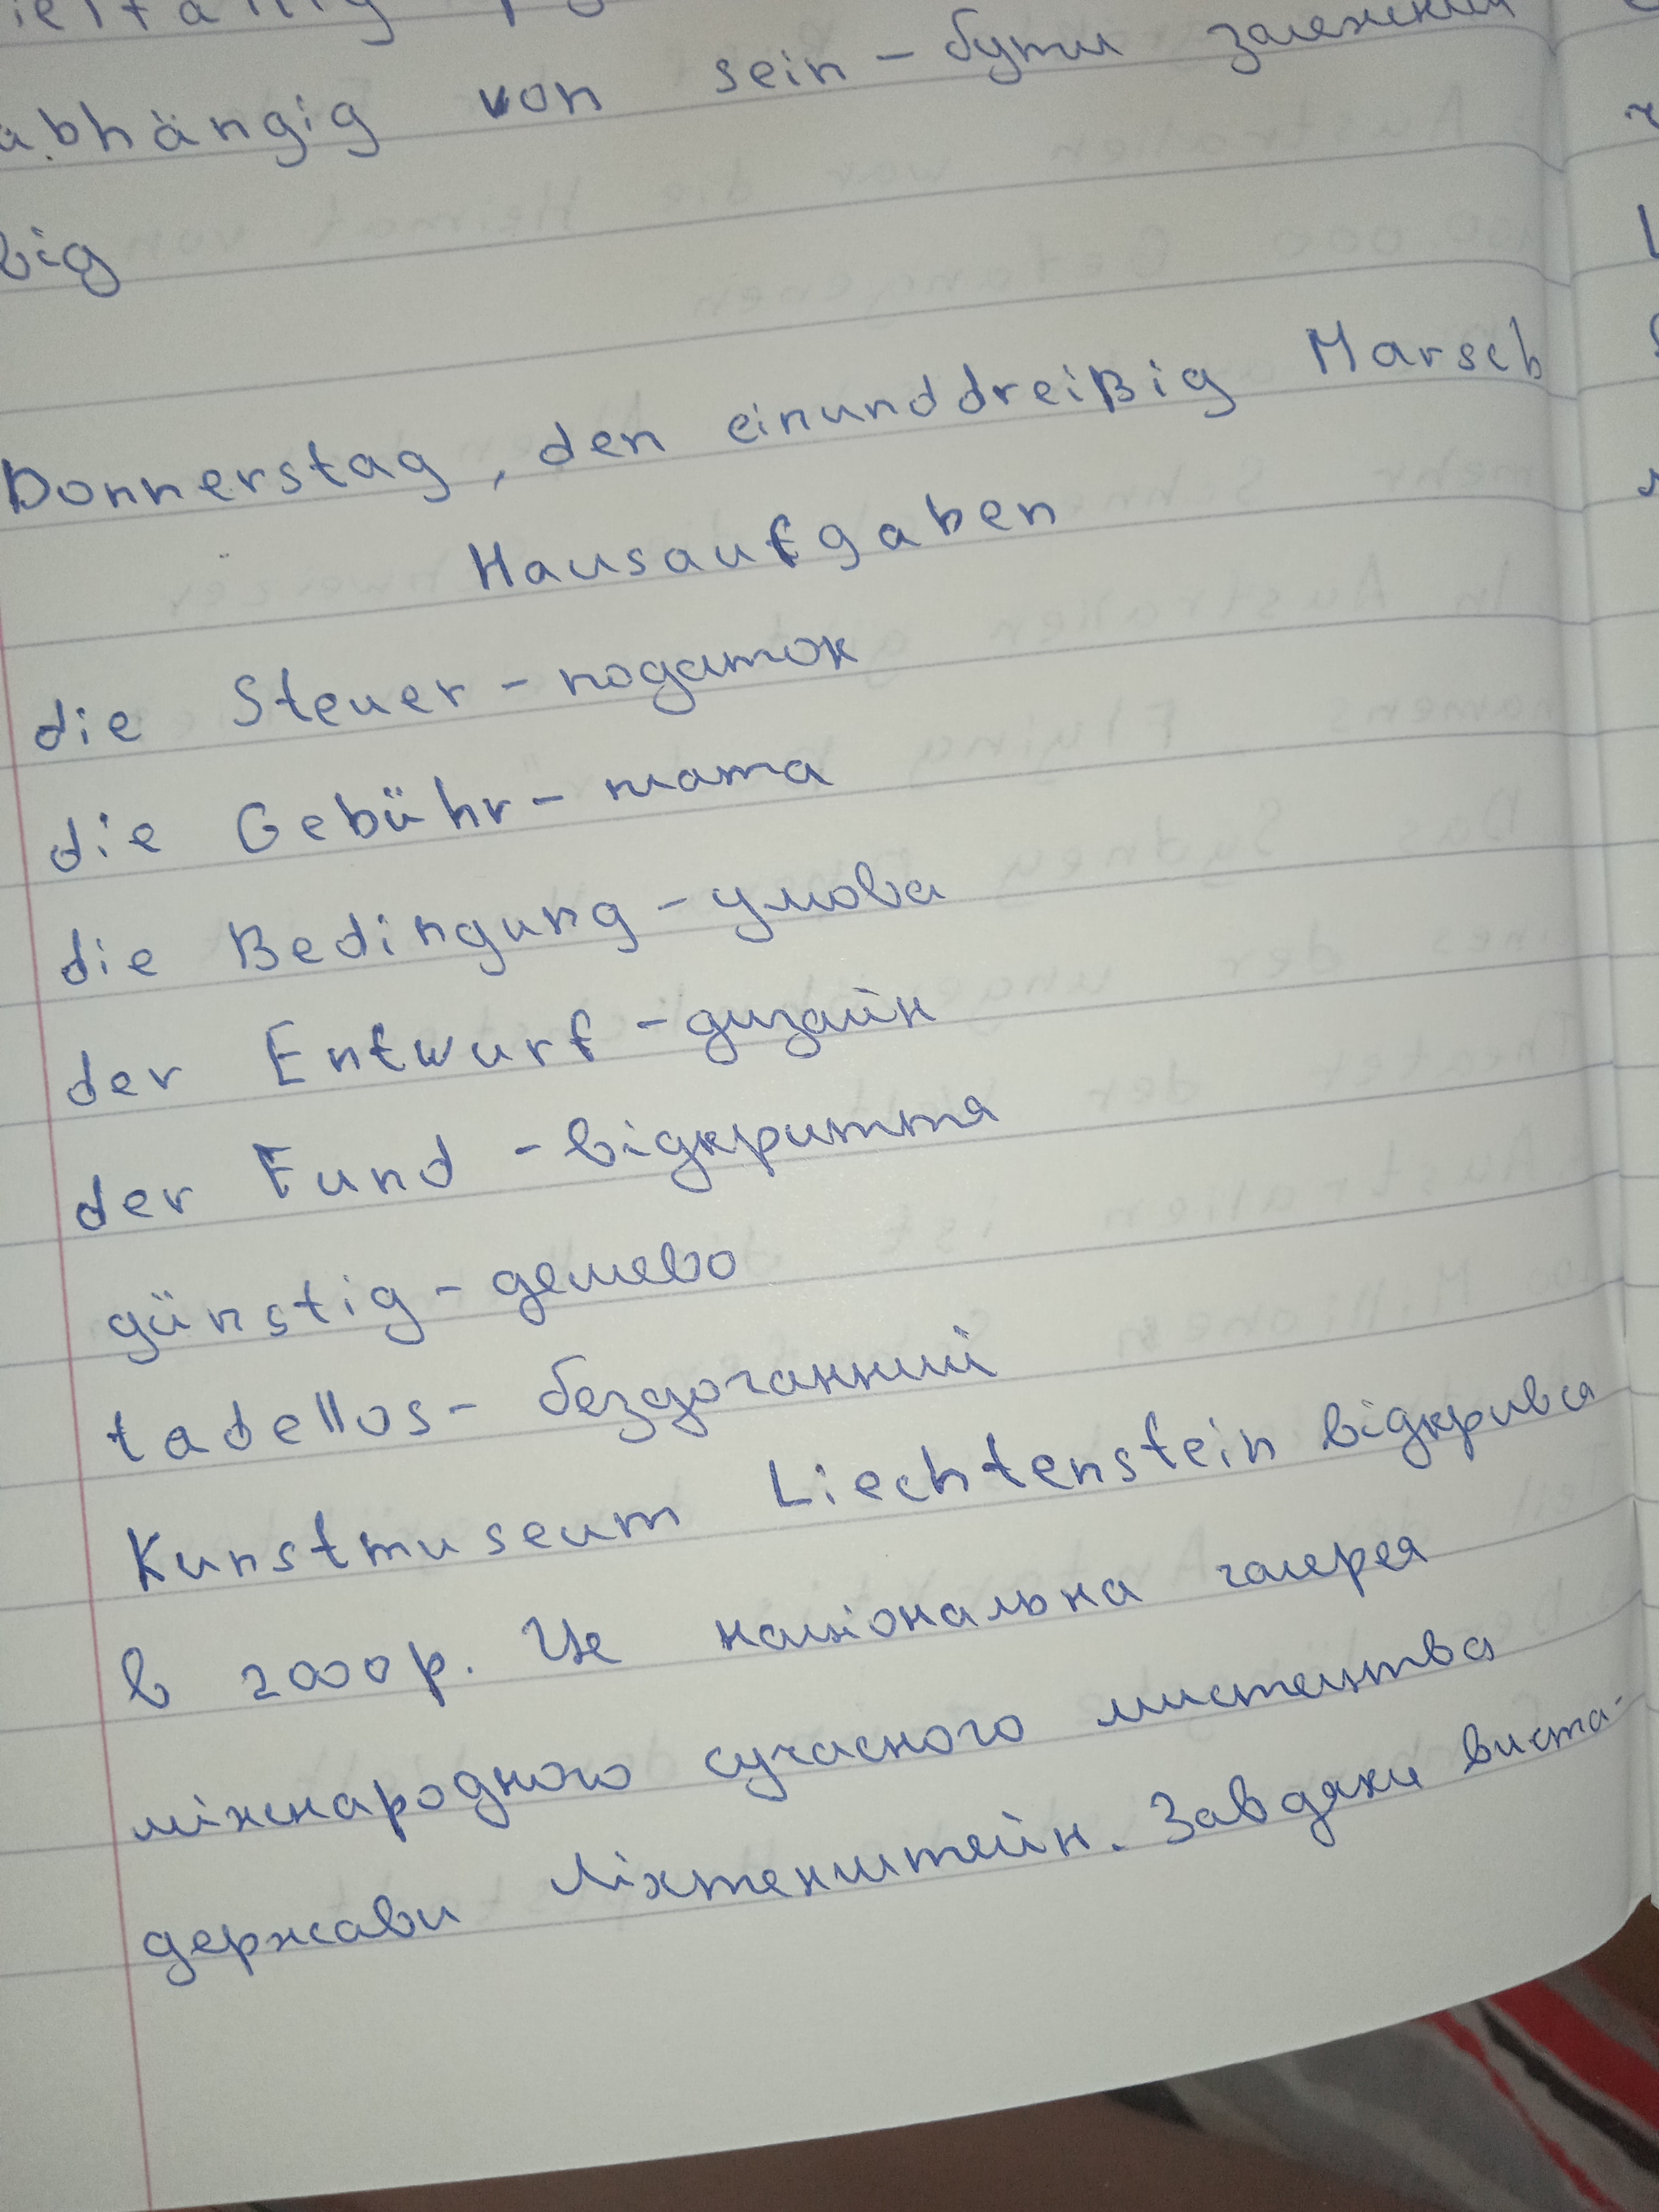 abhängig von sein - бути залежним
від
Donnerstag, den einunddreißig Marsch
Hausaufgaben
die Steuer - податок
die Gebühr - плата
die Bedingung - умова
der Entwurf - дизайн
der Fund - відкриття
günstig - дешево
tadellos - бездоганний
Kunstmuseum Liechtenstein відкрився
в 2000р. Це національна галерея
міжнародного сучасного мистецтва
держави Ліхтенштейн. Завдяки виста-